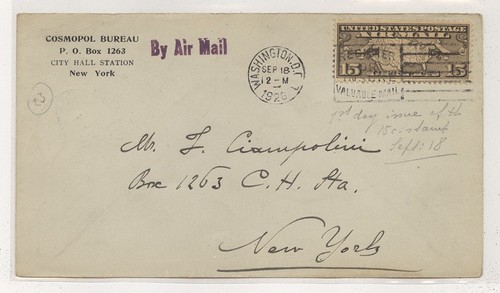 COSMOPOL BUREAU
P. O. Box 1263
CITY HALL STATION
New York
By Air Mail
WASHINGTON, D.C.
SEP 18
2 - M
1926
UNITED STATES POSTAGE
AIR MAIL
15 15
VALUABLE MAIL
13
1st day issue of the
15c. stamp
Sept: 18
Mr. F. Ciampolini
Box 1263 C. H. Sta.
New York